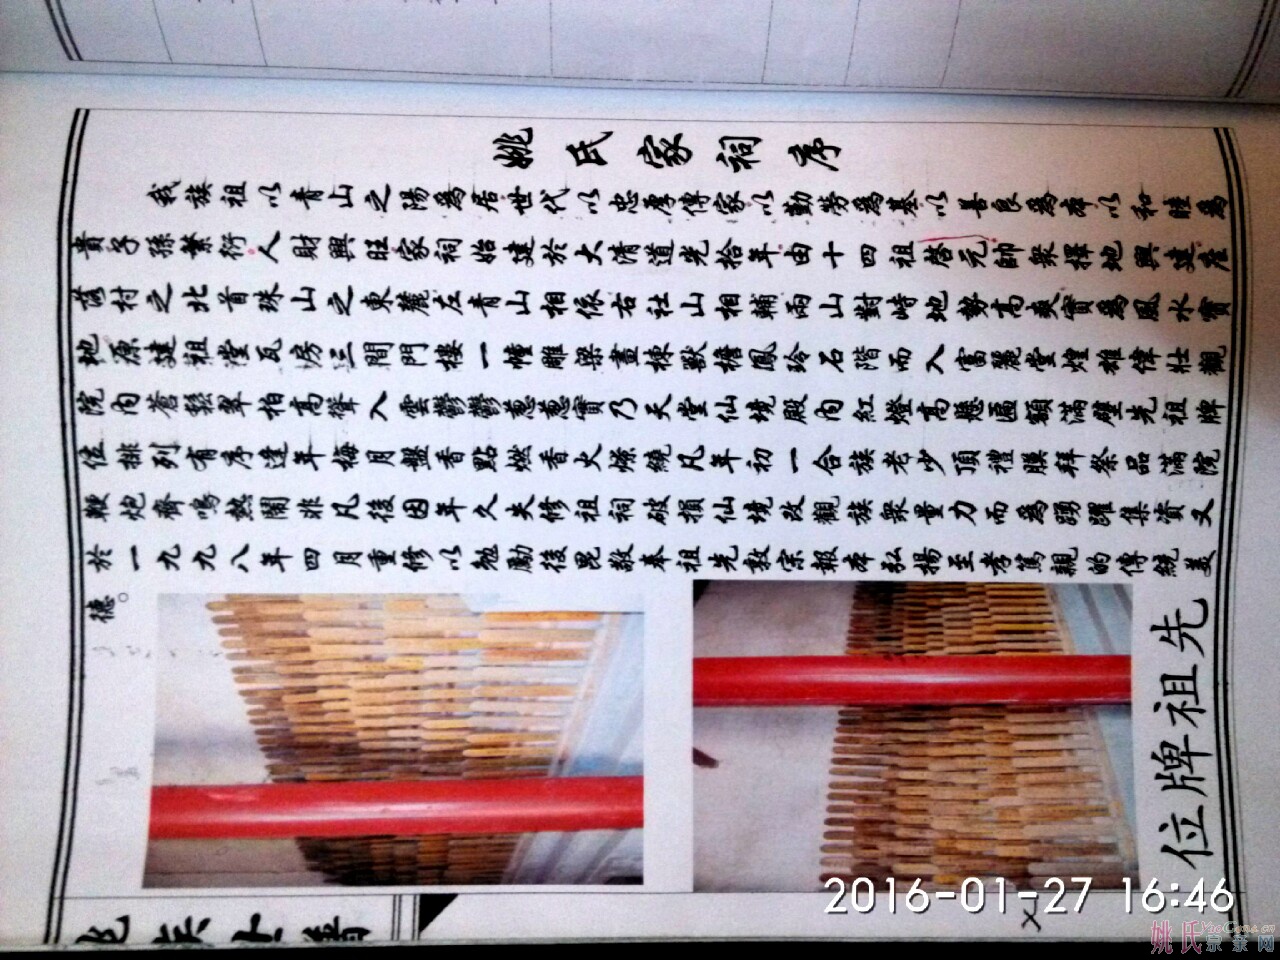 姚氏家祠序
我族祖以青山之陽為居世代以忠厚傳家以勤勞為基以善良為本以和睦為
貴子孫繁衍人財興旺家祠始建於大清道光拾年由十四祖啓元帥衆擇地興建座
落村之北首珠山之東麓左青山相依右社山相輔兩山對峙地勢高爽實為風水寳
地原建祖堂瓦房三間門樓一幢雕梁畫棟獸檐鳳玲石階而入富麗堂煌雄偉壯觀
院内蒼鬆翠柏高聳入雲鬱鬱葱葱實乃天堂仙境殿内紅燈高懸匾額滿壁先祖牌
位排列有序逢年梅月盤香點燃香火燎繞凡年初一合族老少頂禮膜拜祭品滿院
鞭炮齊鳴熱鬧非凡後因年久失修祖祠破損仙境改觀族衆量力而為踴躍集資又
於一九九八年四月重修以勉勵後昆敬奉祖先敦宗報本弘揚至孝篤親的傳統美
德。
先祖牌位
2016-01-27 16:46
姚氏宗亲网